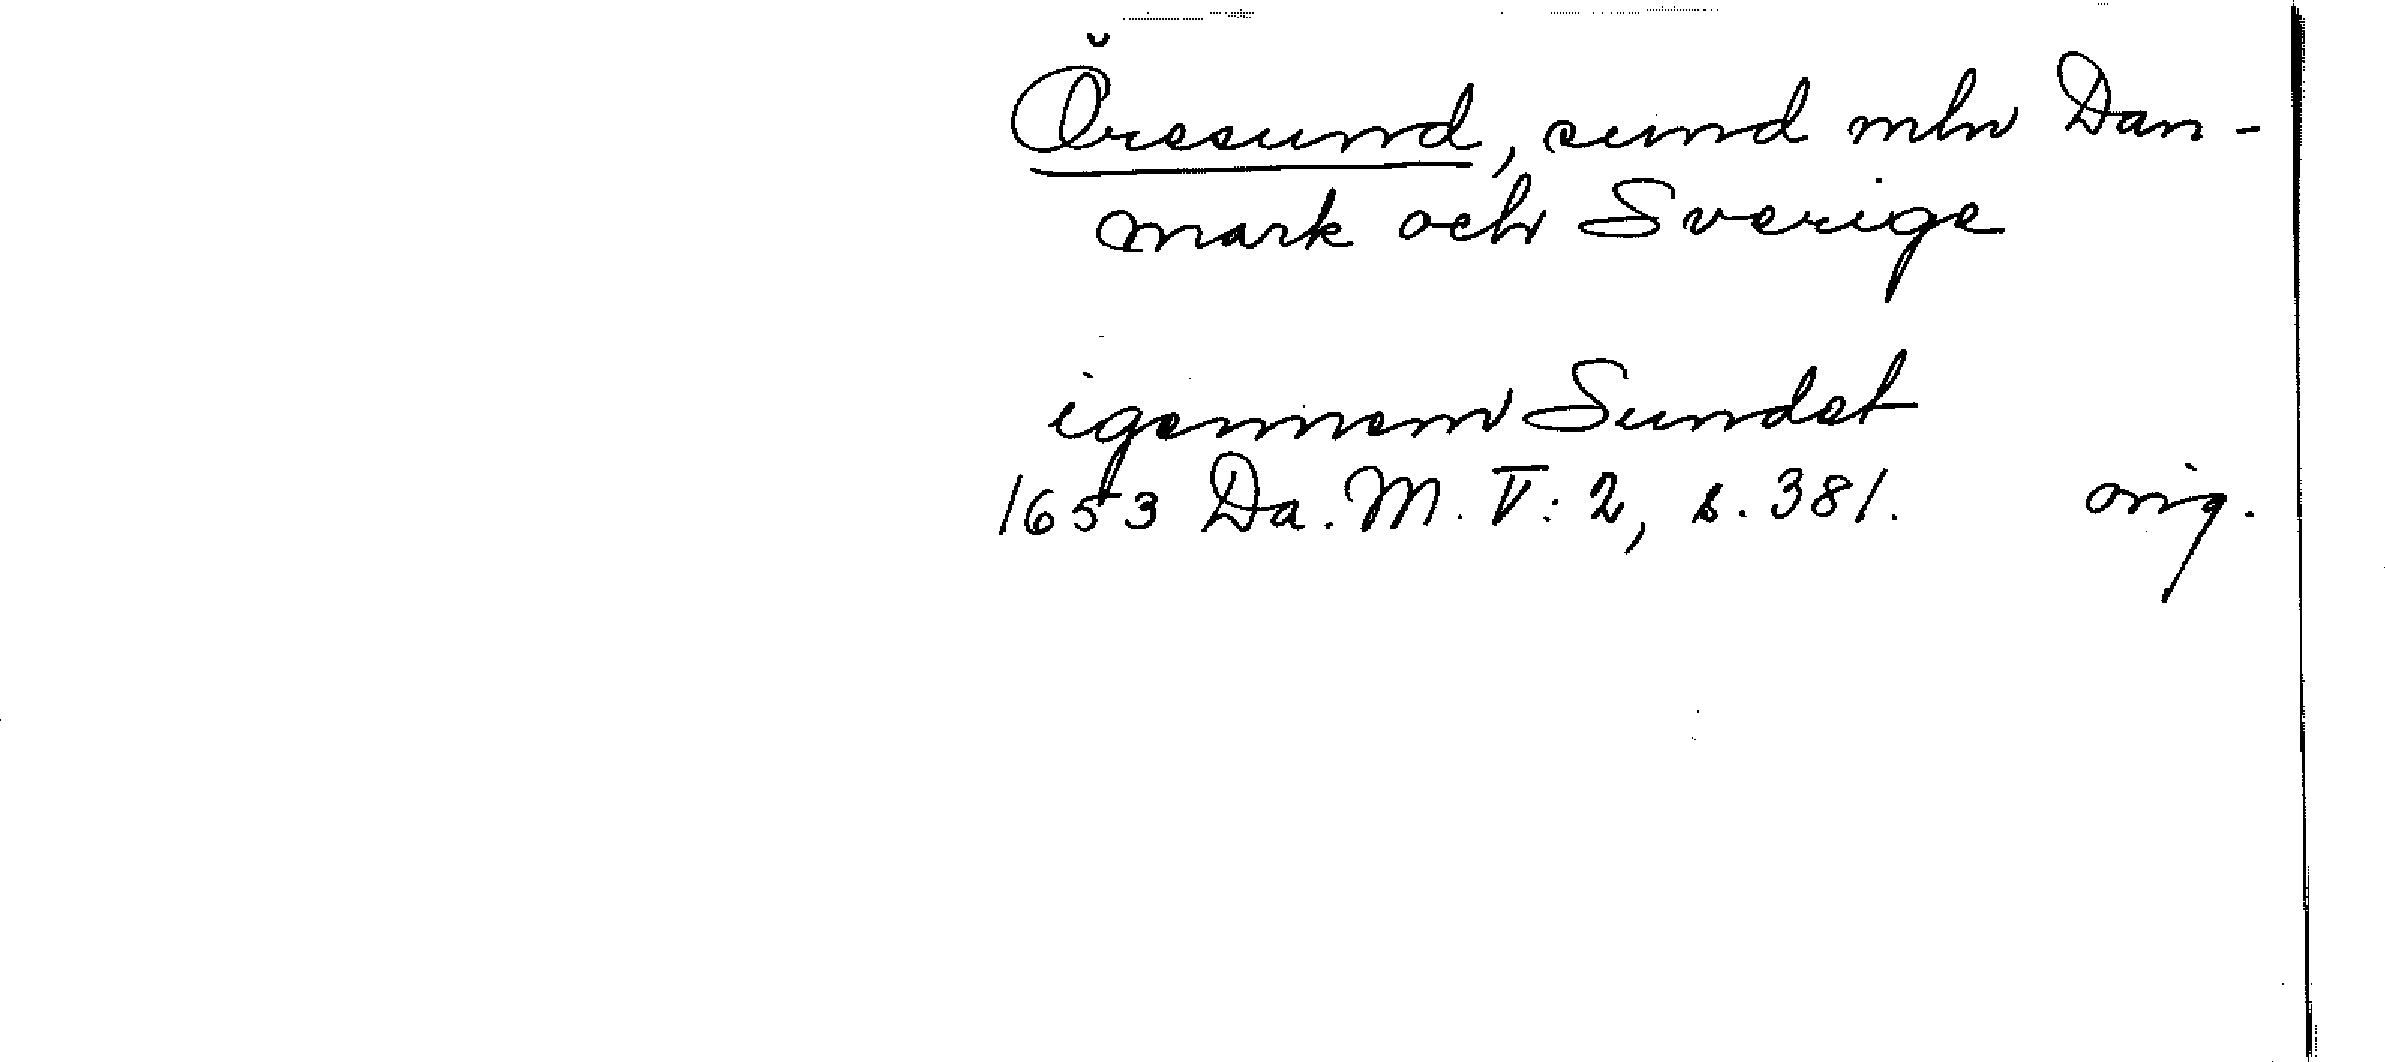 Öresund, sund mln Dan-
mark och Sverige
igennem Sundet
1653 Da. M. V: 2, s. 381. orig.